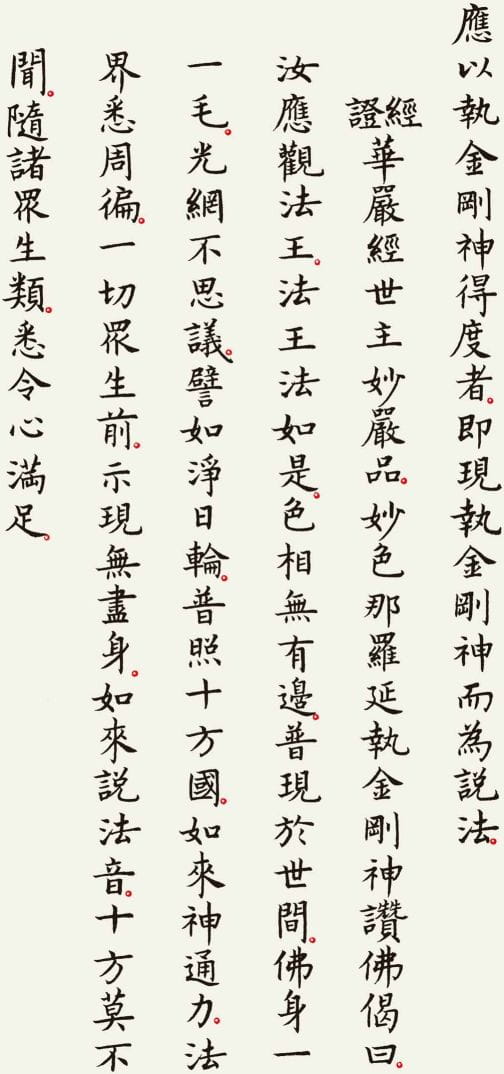 應以執金剛神得度者。即現執金剛神而為說法。
證經華嚴經世主妙嚴品。妙色那羅延執金剛神讚佛偈曰。
汝應觀法王。法王法如是。色相無有邊。普現於世間。佛身一
一毛。光網不思議。譬如淨日輪。普照十方國。如來神通力。法
界悉周徧。一切眾生前。示現無盡身。如來說法音。十方莫不
聞。隨諸眾生類。悉令心滿足。